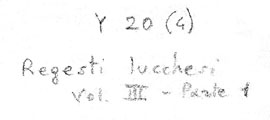 Y 20 (4)
Regesti lucchesi
Vol. III - Parte 1